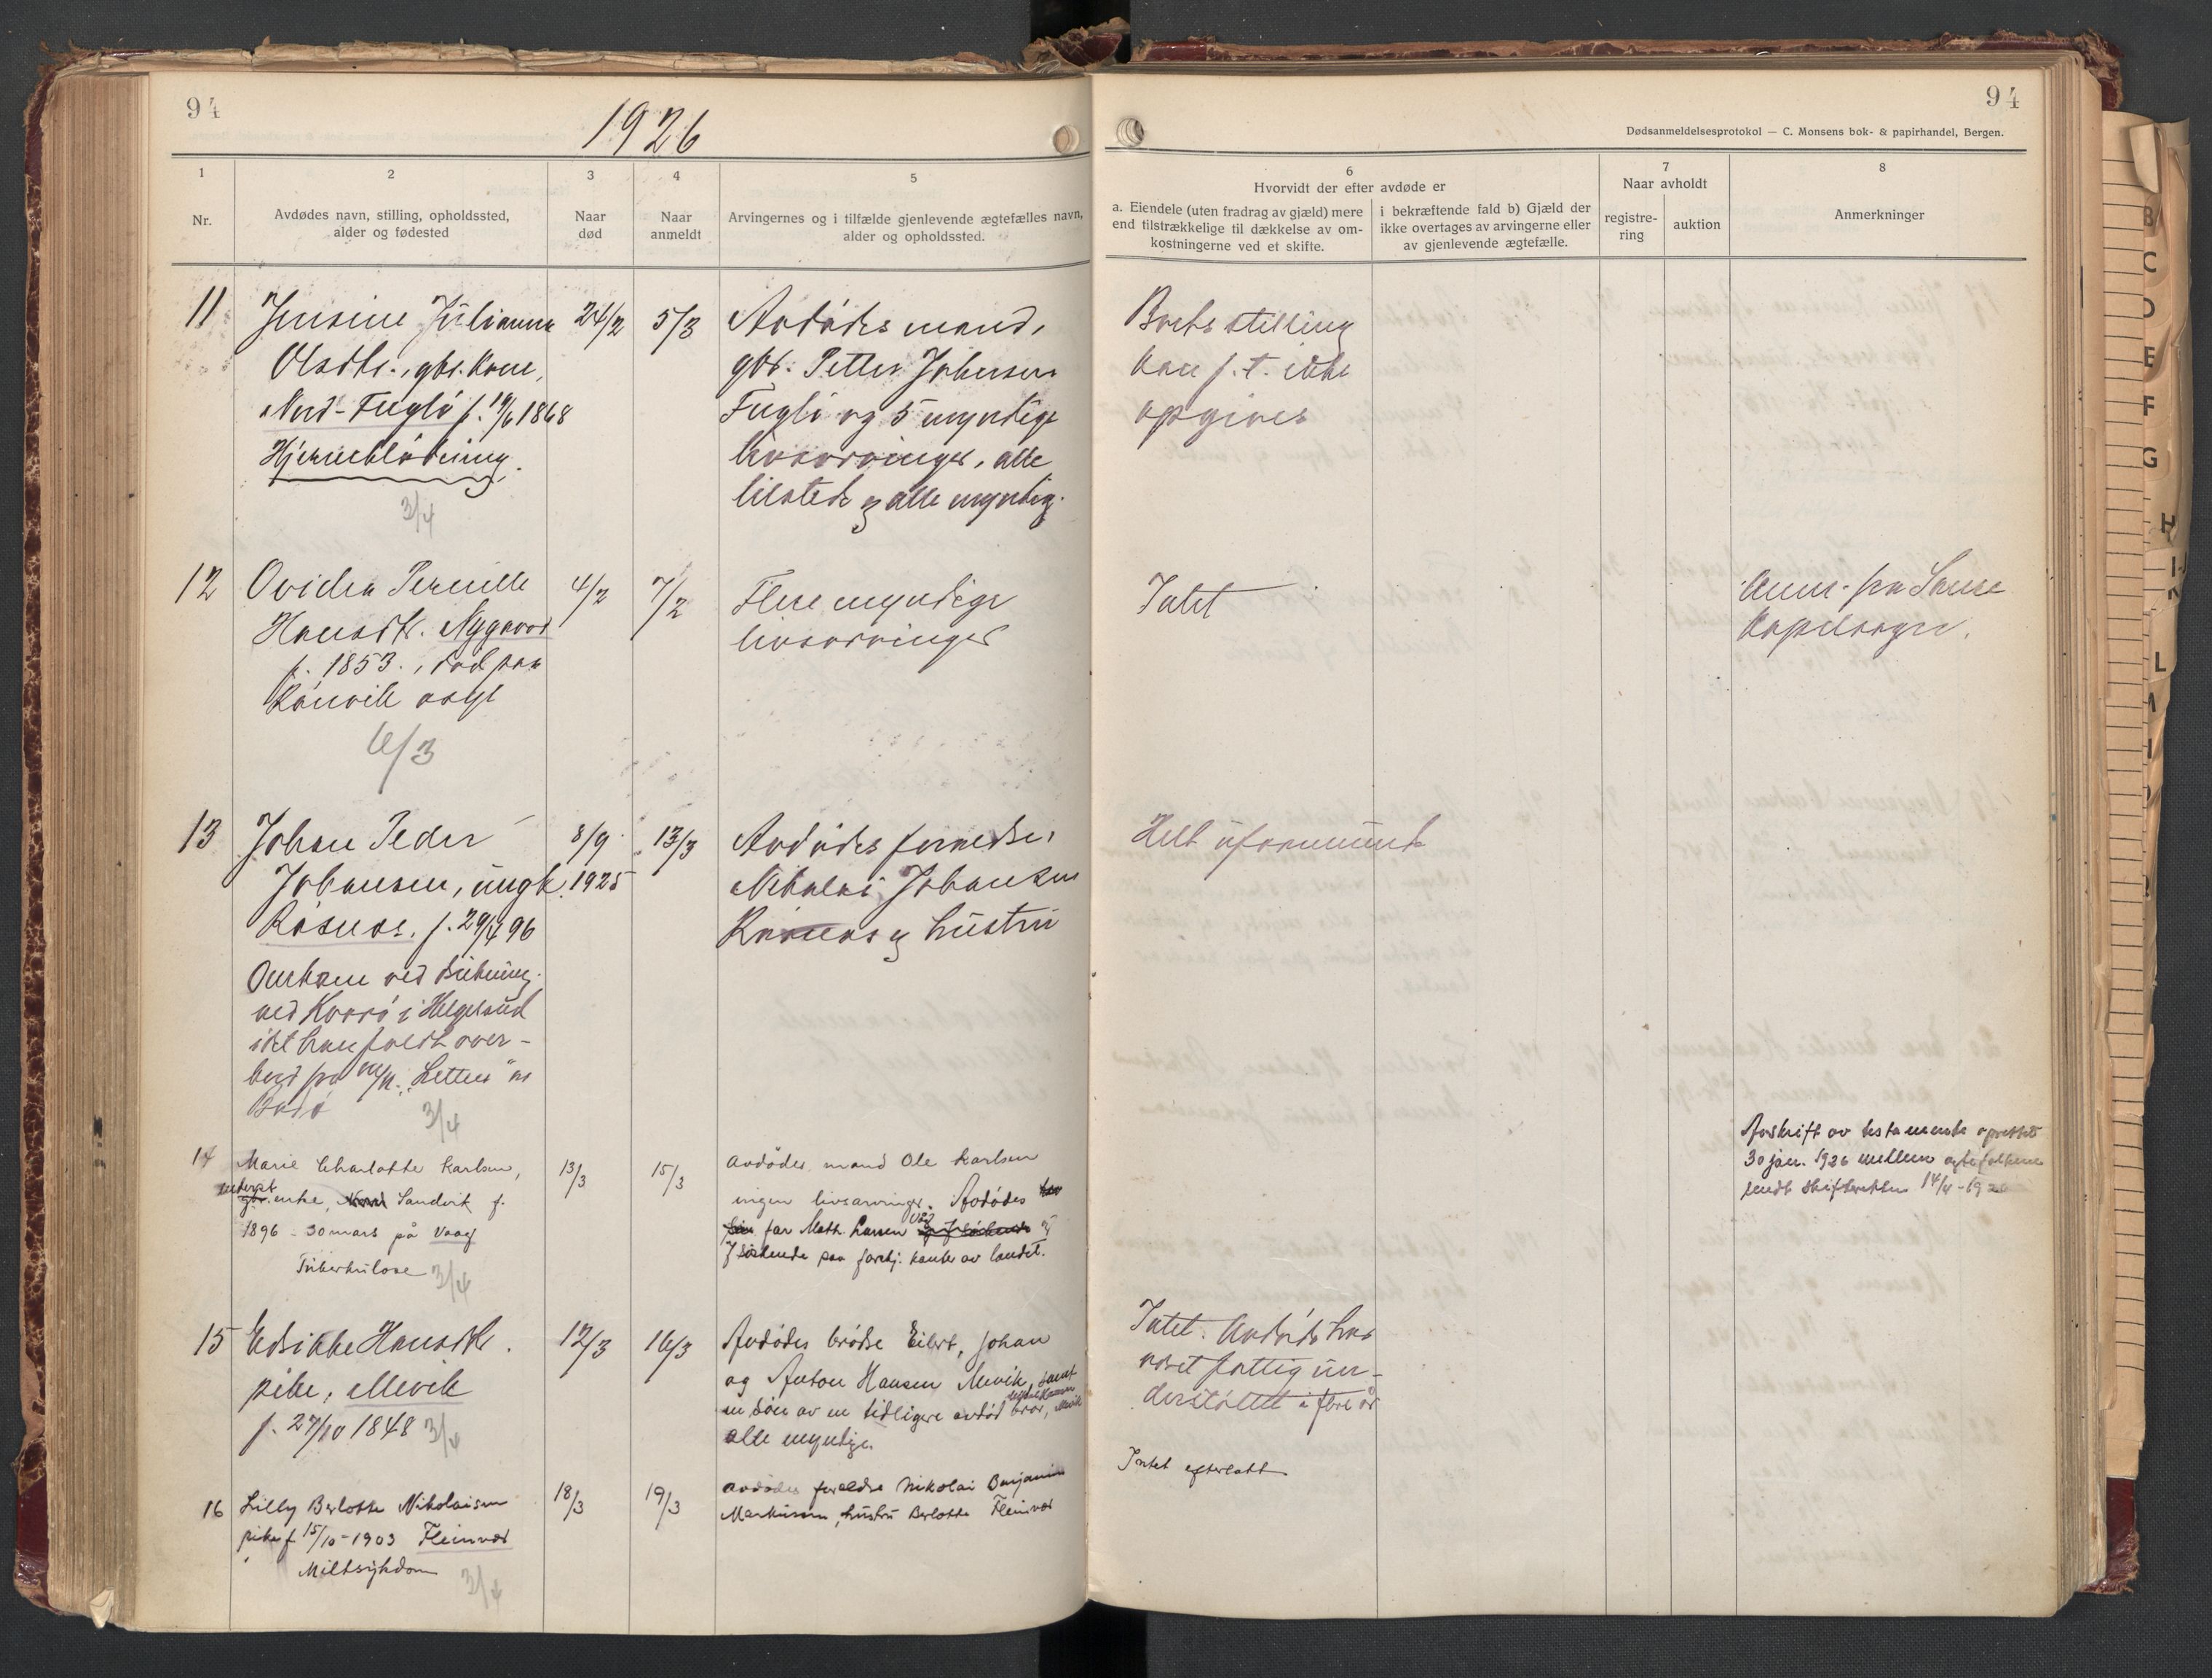 94
1926
94
Dødsanmeldelsesprotokol — C. Monsens bok- & papirhandel, Bergen.
1
Nr.
2
Avdødes navn, stilling, opholdssted,
alder og fødested
3
Naar
død
4
Naar
anmeldt
5
Arvingernes og i tilfælde gjenlevende ægtefælles navn,
alder og opholdssted.
6
Hvorvidt der efter avdøde er
a. Eiendele (uten fradrag av gjæld) mere
end tilstrækkelige til dækkelse av om-
kostningerne ved et skifte.
i bekræftende fald b) Gjæld der
ikke overtages av arvingerne eller
av gjenlevende ægtefælle.
7
Naar avholdt
registre-
ring
auktion
8
Anmerkninger
11
Jensine Julianna
Olsdtr., gbr. kone,
Nord-Fuglø f. 1868
Hjerneblødning.
3/4
24/2
5/3
Avdødes mand,
gbr. Petter Johensen
Fuglø og 5 myndige
livsarvinger, alle
tilstede og alle myndig.
Boets stilling
kan f. t. ikke
opgives
12
Ovidia Pernille
Hansdtr. Nygaard
f. 1853., død paa
Rønvik asyl
6/3
4/2
7/2
Flere myndige
livsarvinger
Intet
Anm. fra
13
Johan Peder
Johansen, ungk.
Råsnes. f. 29/4 96
Omkom ved drukning
ved i Helgeland
idet han faldt over-
bord fra m/k.
Bodø
3/4
8/9
1925
13/3
Avdødes forældre,
Nikolai Johansen
og hustru
Helt uformuende
14
Marie Charlotte Karlsen,
enke, Sandvik f.
1896 - 30 mars på Vaag
Tuberkulose
3/4
13/3
15/3
Avdødes mand Ole Karlsen
ingen livsarvinger. Avdødes
far Math. Larsen og
7 søskende paa forskj. kanter av landet.
Avskrift av testamente oprettet
30 jan. 1926 mellem egtefolkene
sendt skifteretten 14/4-192
15
Edikke Hansdtr.
pike, Mevik
f. 27/10 1848
3/4
12/3
16/3
Avdødes brødre Eilert, Johan
og Anton Hansen Mevik, samt
en søn av en tidligere avdød bror,
alle myndige.
Intet. Avdøde har
været fattig un-
derstøttet i flere år
16
Lilly Berlotte Nikolaisen
pike f 15/10-1903 Fleinvær
Miltsykdom
3/4
18/3
19/3
Avdødes foreldre Nikolai Benjamin
Markussen, hustru Berlotte Fleinvær
Intet efterlatt